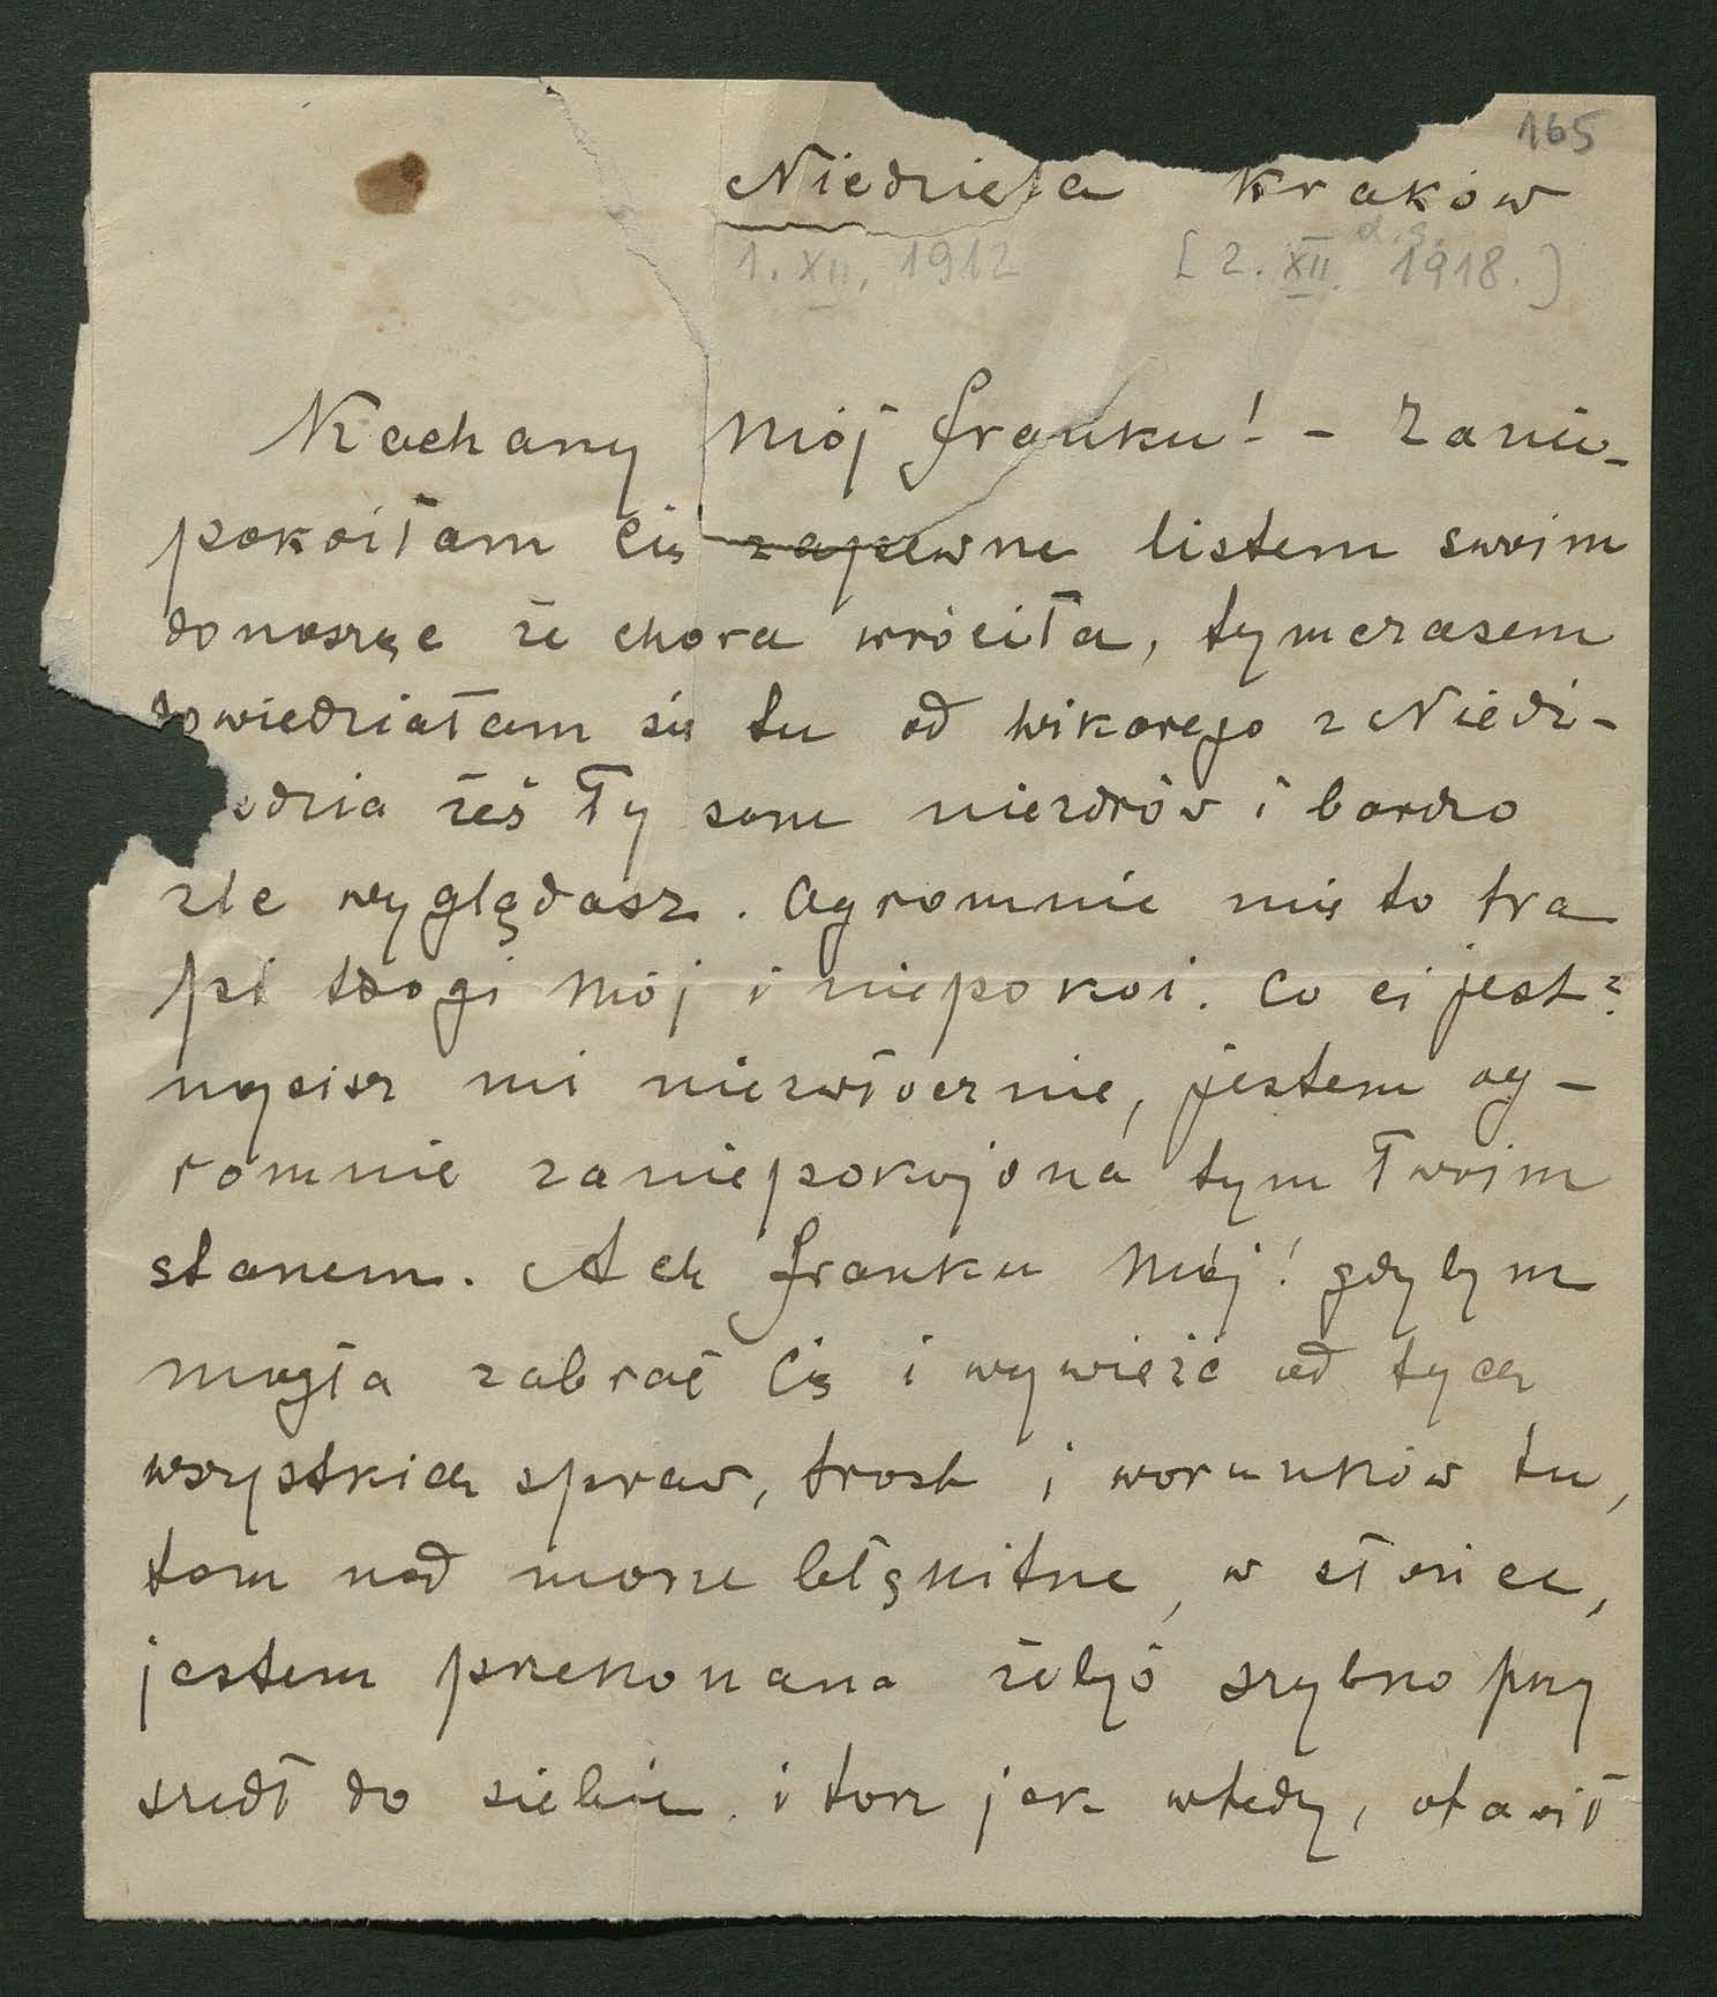 165
Niedziela Kraków
d. s.
1. XII. 1912 [2. XII. 1918.]
Kochany Mój Franku! - Zanie-
pokoiłam Cię zapewne listem swoim
donosząc że chora wróciła, tymczasem
dowiedziałam się tu od wikarego z Niedź-
edzia żeś Ty sam niezdrów i bardzo
źle wyglądasz. Ogromnie mię to tra
pi drogi Mój i niepokoi. Co ci jest?
napisz mi niezwłocznie, jestem og-
romnie zaniepokojona tym Twoim
stanem. Ach Franku Mój! gdybym
mogła zabrać Cię i wywieźć od tych
wszystkich spraw, trosk i warunków tu,
tam nad morze błękitne, w słońce,
jestem przekonana żebyś szybko przy
szedł do siebie i tak jak wtedy,